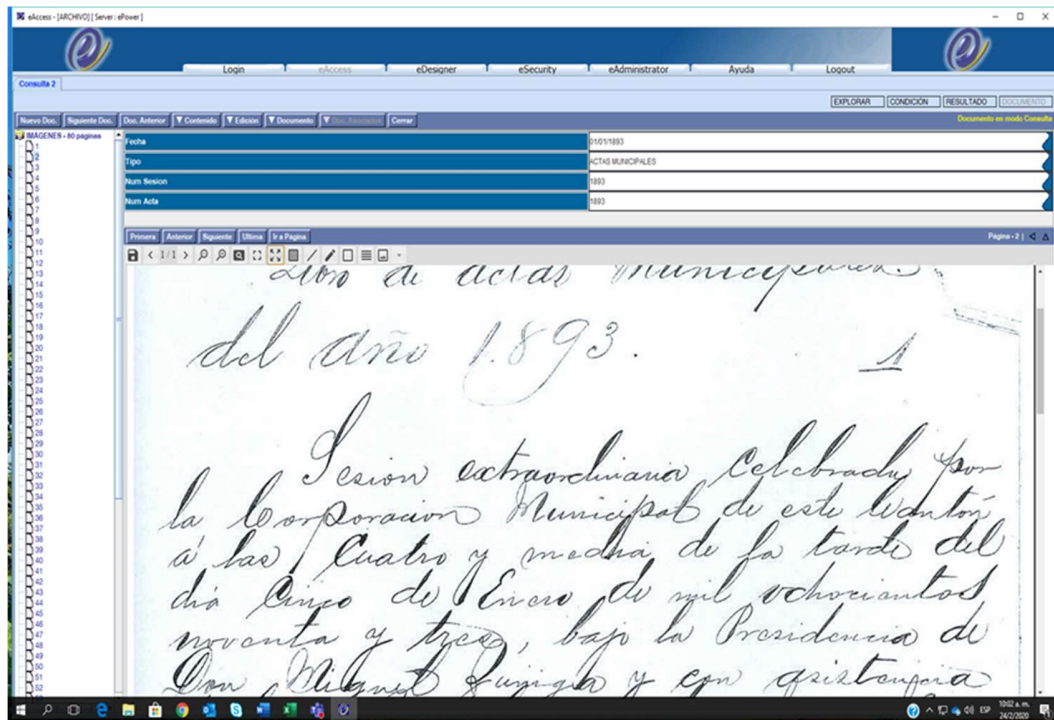 eAccess - [ARCHIVO] [ Server : ePower ]
Login eAccess eDesigner eSecurity eAdministrator Ayuda Logout
Consulta 2
EXPLORAR CONDICIÓN RESULTADO DOCUMENTO
Nuevo Doc. Siguiente Doc. Doc. Anterior Contenido Edición Documento Doc. Asociados Cerrar
Documento en modo Consulta
IMÁGENES - 80 páginas
1
2
3
4
5
6
7
8
9
10
11
12
13
14
15
16
17
18
19
20
21
22
23
24
25
26
27
28
29
30
31
32
33
34
35
36
37
38
39
40
41
42
43
44
45
46
47
48
49
50
51
52
Fecha 01/01/1893
Tipo ACTAS MUNICIPALES
Num Sesion 1893
Num Acta 1893
Primera Anterior Siguiente Ultima Ir a Pagina
Página - 2 |
1/1
de actas Municipales
del año 1.893. 1
Sesion extraordinaria Celebrada por
la Corporacion Municipal de este Cantón
á las Cuatro y media de la tarde del
dia Cinco de Enero de mil ochocientos
noventa y tres, bajo la Presidencia de
Don Miguel Zuñiga y con asistencia
ESP
10:02 a. m.
24/2/2020